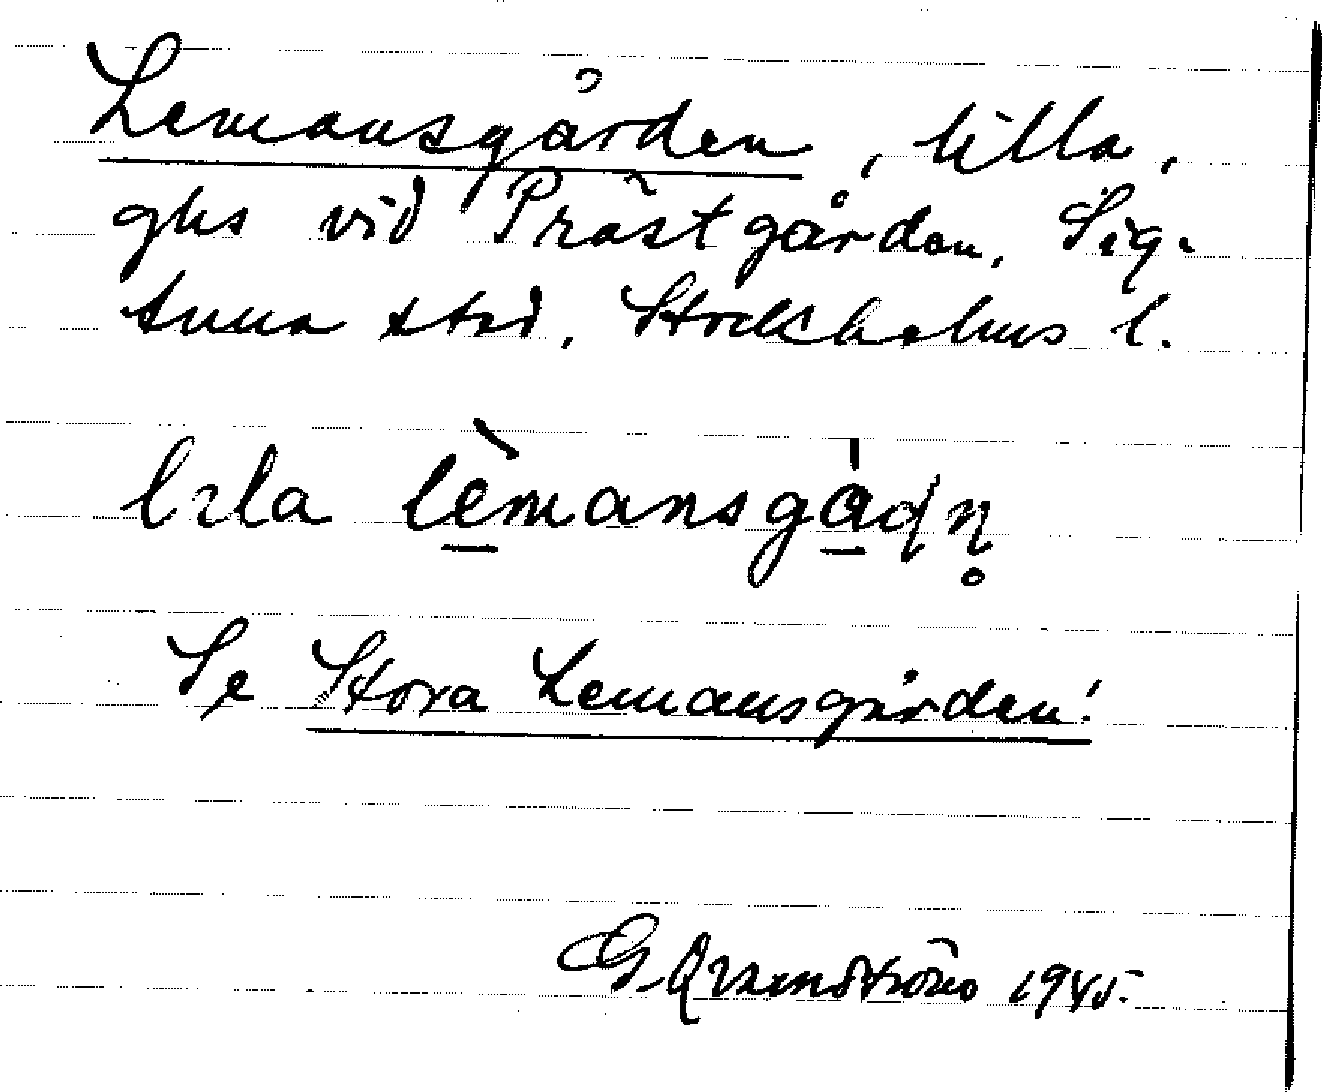 Lemansgården, lilla,
ghs vid Prästgården, Sig-
tuna stad, Stockholms l.
lɩla lèmansgȧḍṇ̊
Se Stora Lemansgården!
G. Qvarnström 1945.